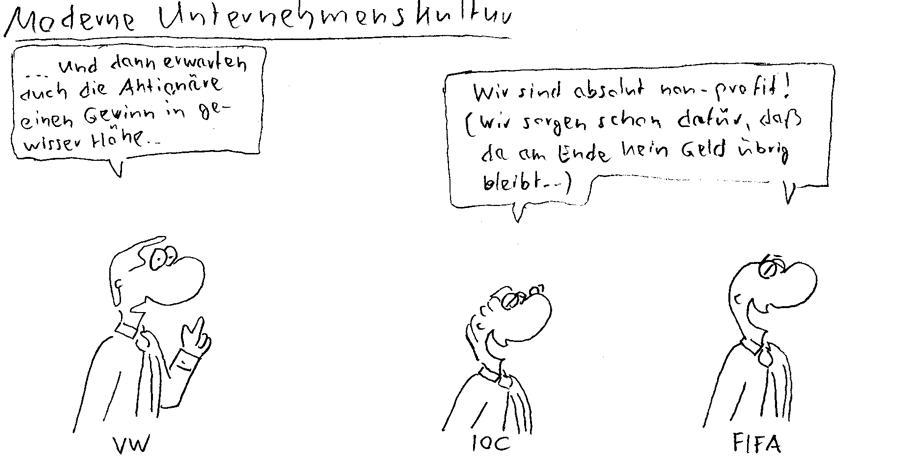 Moderne Unternehmenskultur
... und dann erwarten
auch die Aktionäre
einen Gewinn in ge-
wisser Höhe...
Wir sind absolut non-profit!
(wir sorgen schon dafür, daß
da am Ende kein Geld übrig
bleibt...)
VW
IOC
FIFA